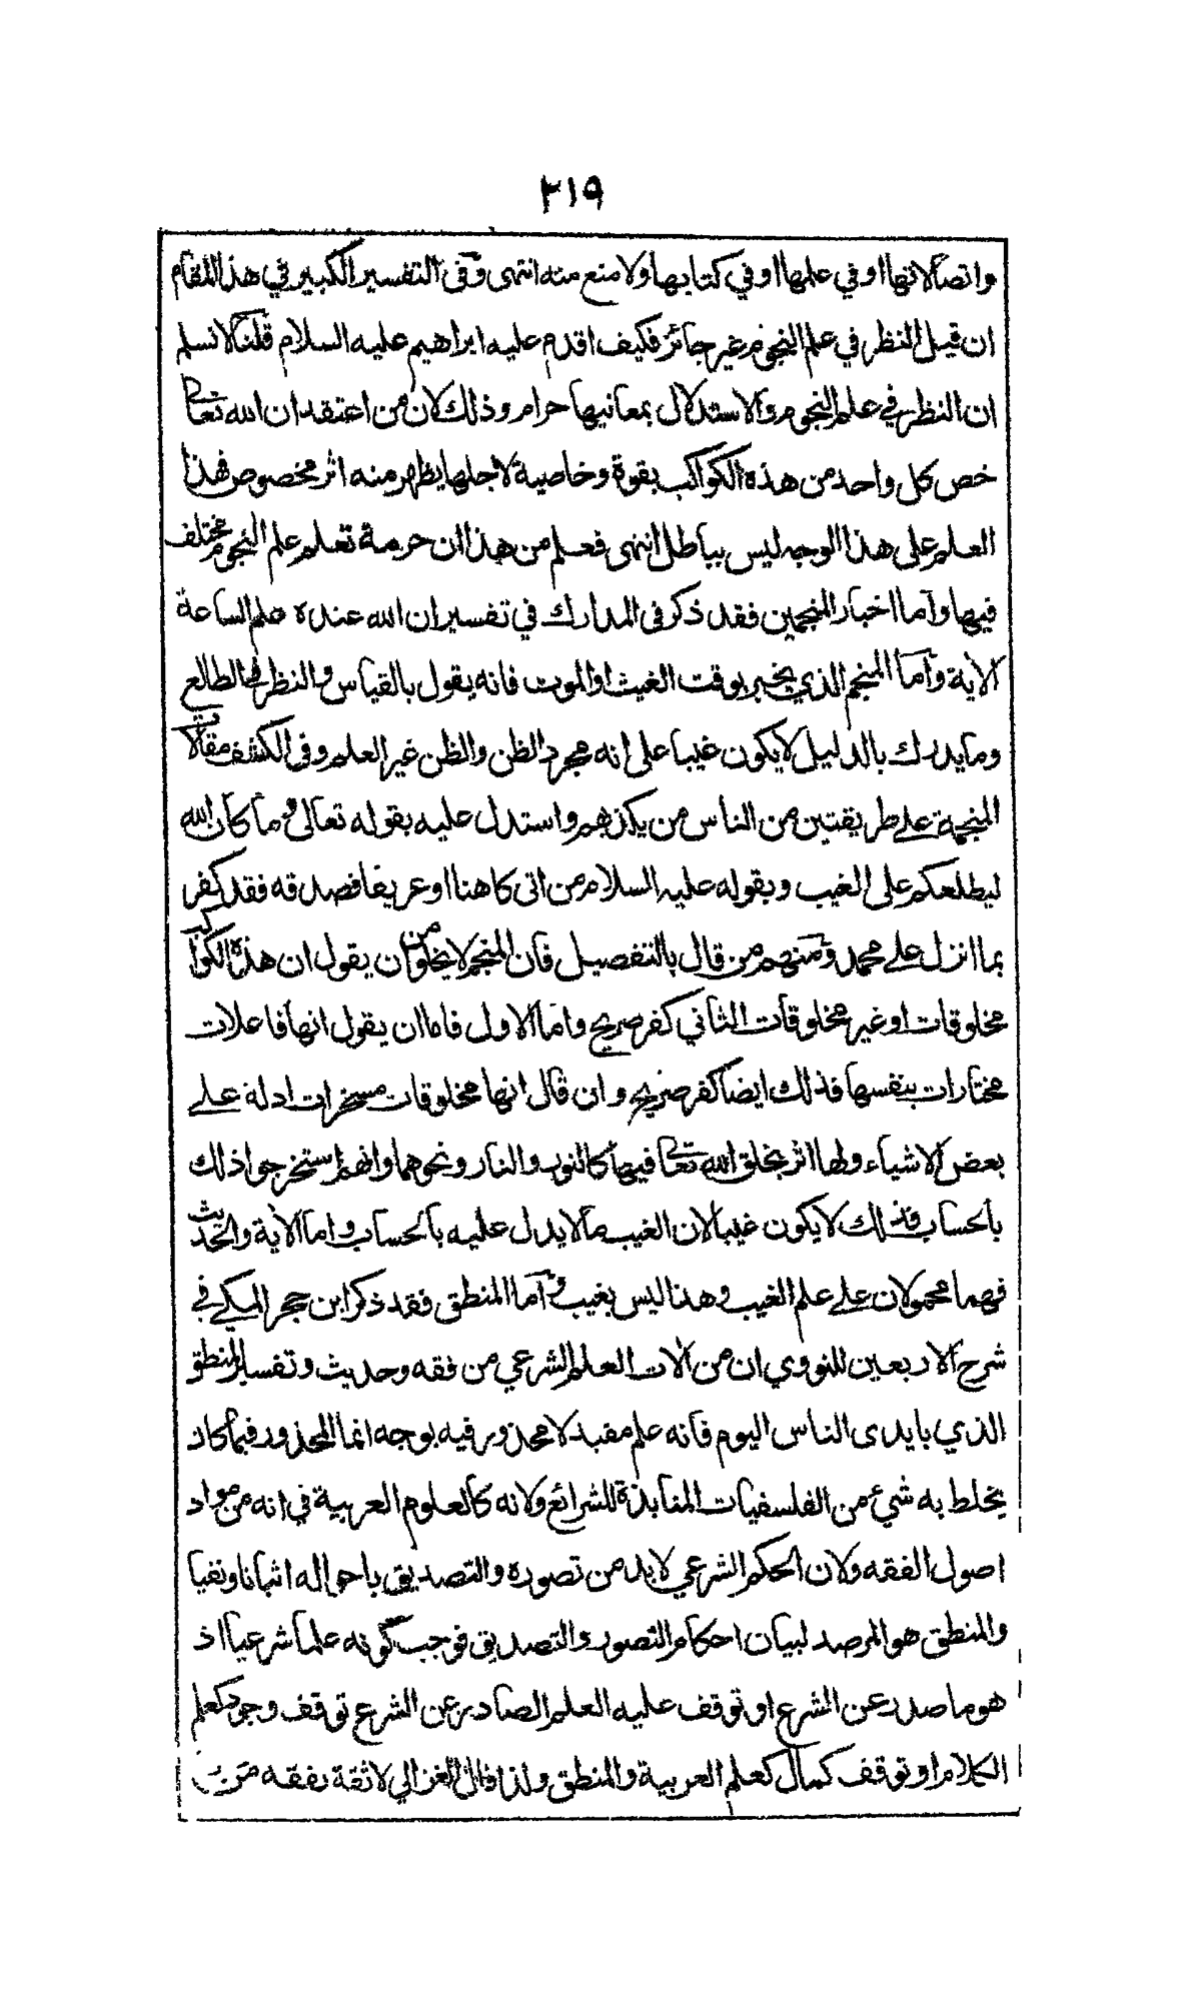 ٢١٩
واتصالاتها او في علمها او في كتابها ولا منع منه انتهى وفى التفسير الكبير في هذا المقام
ان قيل النظر في علم النجوم غير جائز فكيف اقدم عليه ابراهيم عليه السلام قلنا لا نسلم
ان النظر في علم النجوم والاستدلال بمعانيها حرام وذلك لان من اعتقد ان الله تعالى
خص كل واحد من هذه الكواكب بقوة وخاصية لاجلها يظهر منه اثر مخصوص فهذا
العلم على هذا الوجه ليس بباطل انتهى فعلم من هذا ان حرمة تعلم علم النجوم مختلف
فيها واما اخبار المنجمين فقد ذكر فى المدارك في تفسير ان الله عنده علم الساعة
الآية واما المنجم الذي يخبر بوقت الغيث او الموت فانه يقول بالقياس والنظر في الطالع
وما يدرك بالدليل لا يكون غيبا على انه مجرد الظن والظن غير العلم وفى الكشف مقالات
المنجمة على طريقتين من الناس من يكذبهم واستدل عليه بقوله تعالى وما كان الله
ليطلعكم على الغيب وبقوله عليه السلام من اتى كاهنا او عريفا فصدقه فقد كفر
بما انزل على محمد ومنهم من قال بالتفصيل فان المنجم لا يخلو من ان يقول ان هذه الكواكب
مخلوقات او غير مخلوقات الثاني كفر صريح واما الاول فاما ان يقول انها فاعلات
مختارات بنفسها فذلك ايضا كفر صريح وان قال انها مخلوقات مسخرات ادلة على
بعض الاشياء ولها اثر بخلق الله تعالى فيها كالنور والنار ونحوهما وانهم استخرجوا ذلك
بالحساب فذلك لا يكون غيبا لان الغيب ما لا يدل عليه بالحساب واما الآية والحديث
فهما محمولان على علم الغيب وهذا ليس بغيب واما المنطق فقد ذكر ابن حجر المكي في
شرح الاربعين للنووي ان من آلات العلم الشرعي من فقه وحديث وتفسير المنطق
الذي بايدى الناس اليوم فانه علم مفيد لا محذور فيه بوجه انما المحذور فيما كان
يخلط به شيء من الفلسفيات المنابذة للشرائع ولانه كالعلوم العربية في انه من مواد
اصول الفقه ولان الحكم الشرعي لابد من تصوره والتصديق باحواله اثباتا ونفيا
والمنطق هو المرصد لبيان احكام التصور والتصديق فوجب كونه علما شرعيا اذ
هو ما صدر عن الشرع او توقف عليه العلم الصادر عن الشرع توقف وجود كعلم
الكلام او توقف كمال كعلم العربية والمنطق ولذا قال الغزالي لا ثقة بفقه من